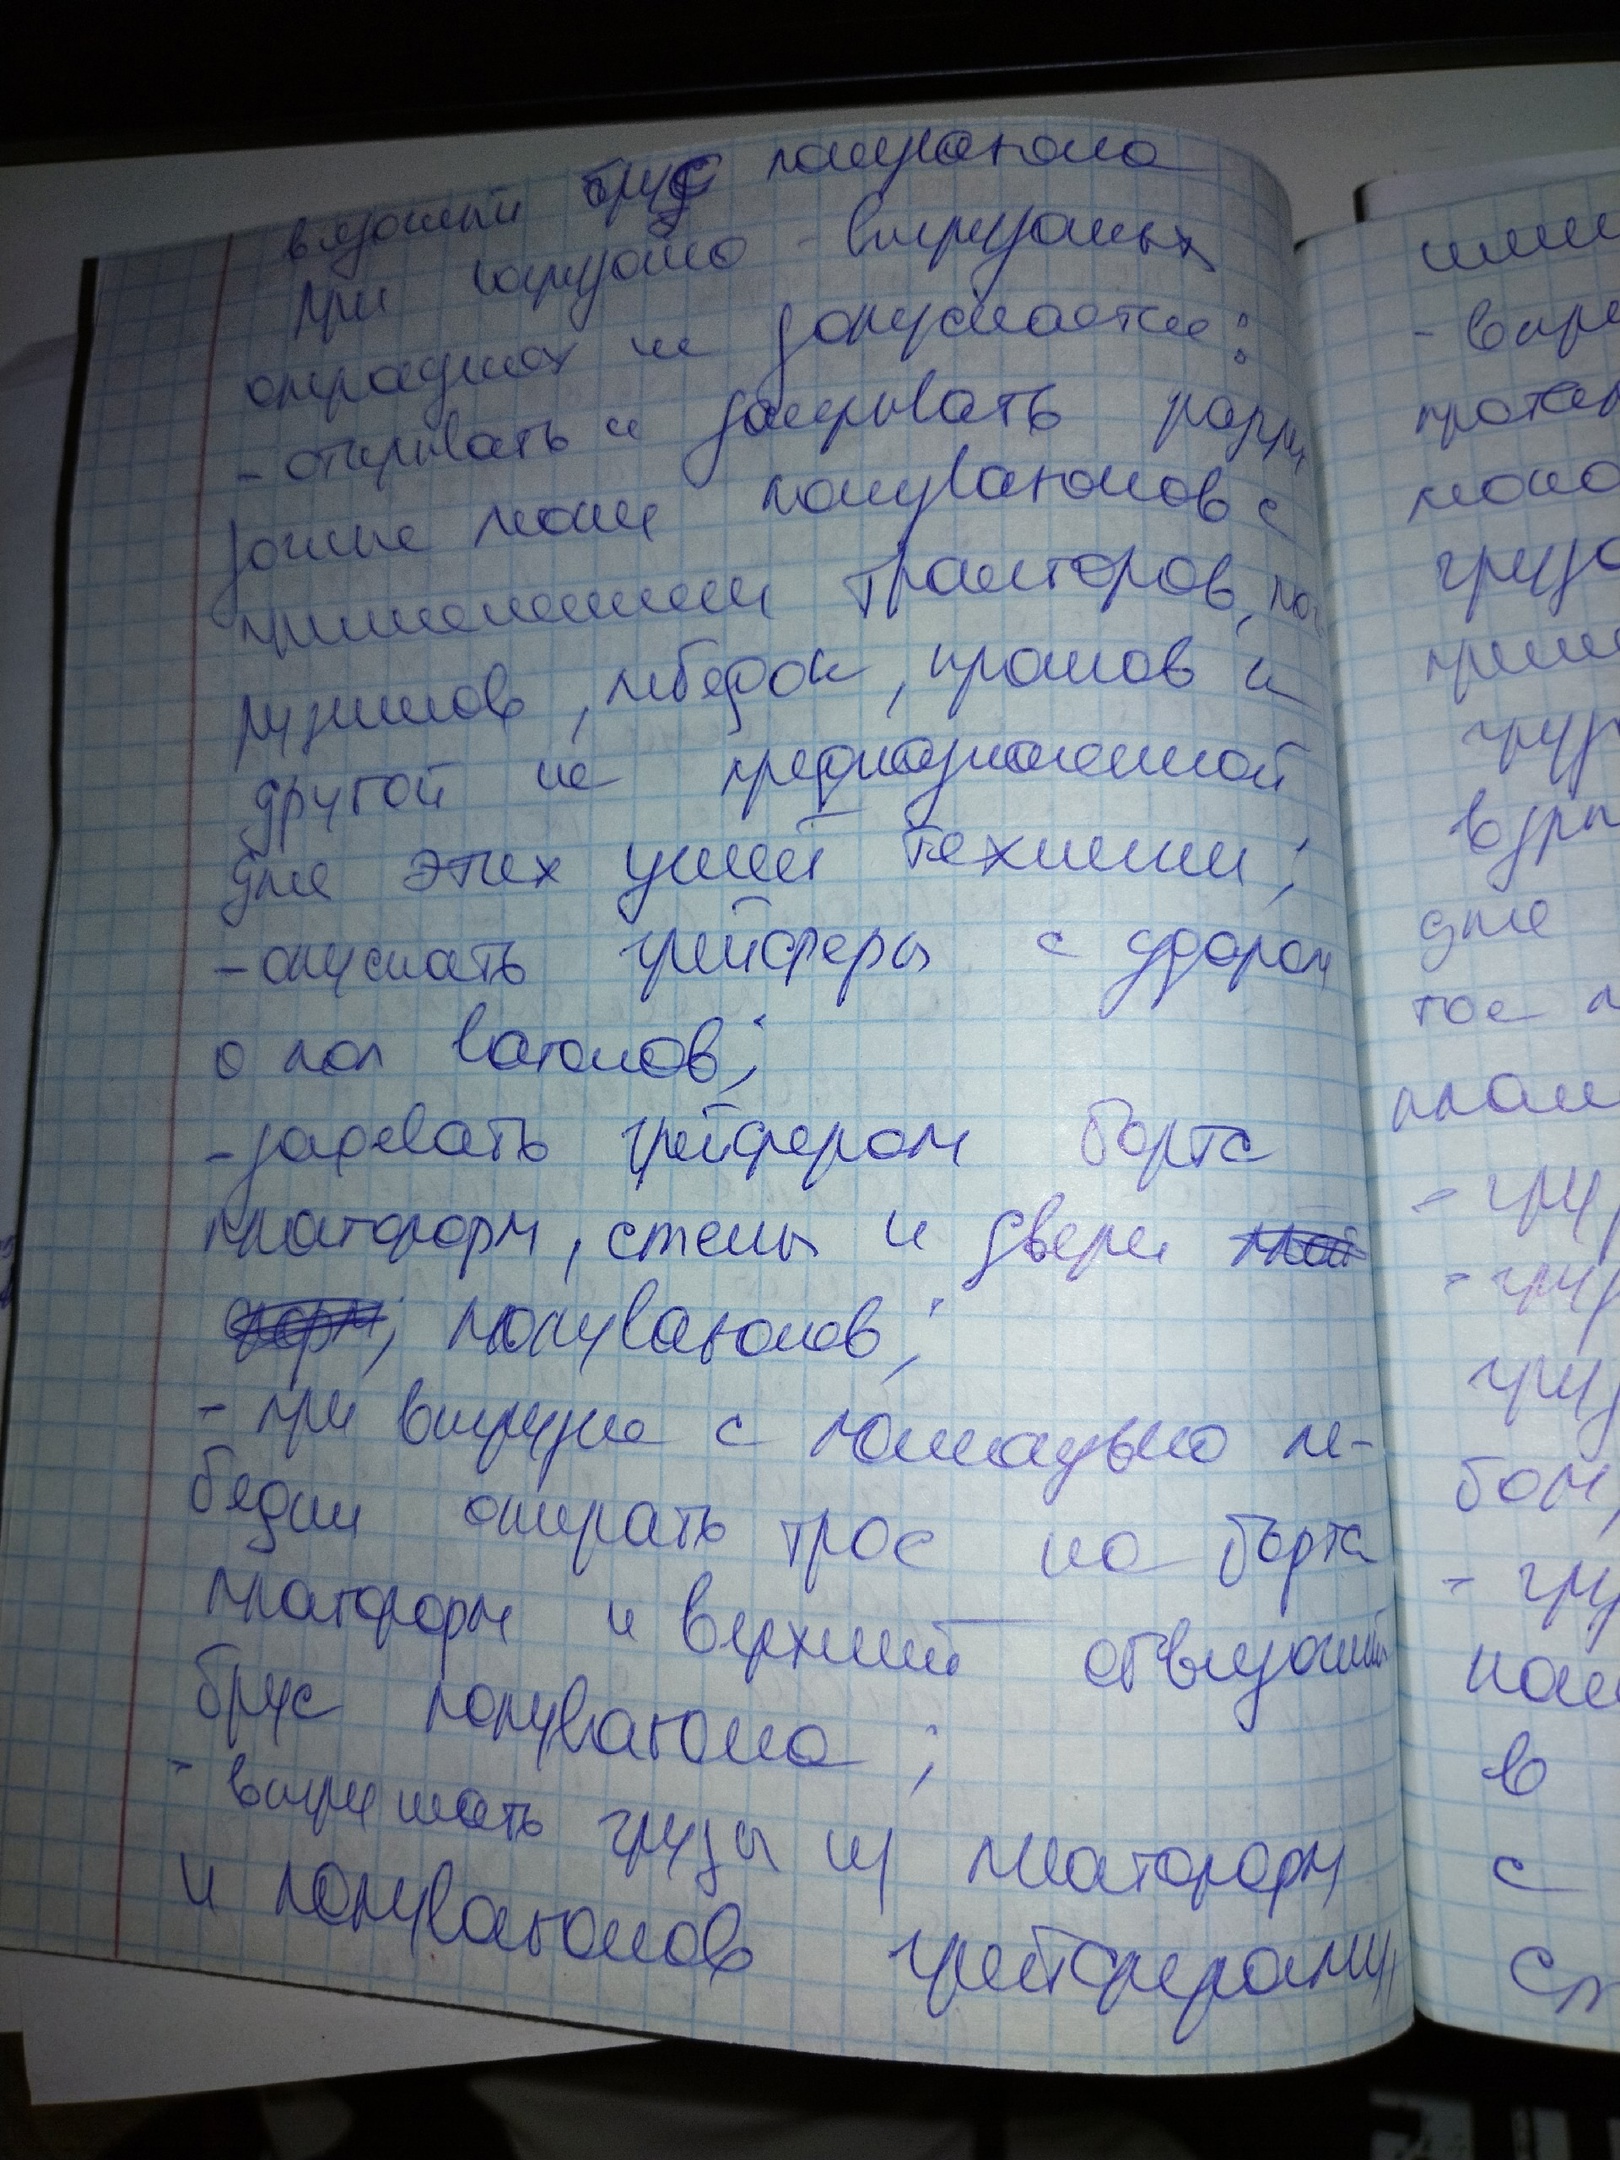 вязочный брус полувагона
При погрузо - выгрузочных
операциях не допускается:
- открывать и закрывать разгру
зочные люки полувагонов с
применением тракторов, пог
рузчиков, лебедок, кранов и
другой не предназначенной
для этих целей техники;
- опускать грейферы с ударом
о пол вагонов;
- задевать грейфером борта
платформ, стены и двери
полувагонов;
- при выгрузке с помощью ле-
бедки опирать трос на борта
платформ и верхний обвязочный
брус полувагона;
- выгружать грузы из платформ
и полувагонов грейферами,
- выгр
грузо
взры
для
тое
- гру
- гру
груз
бом,
- гру
в
с